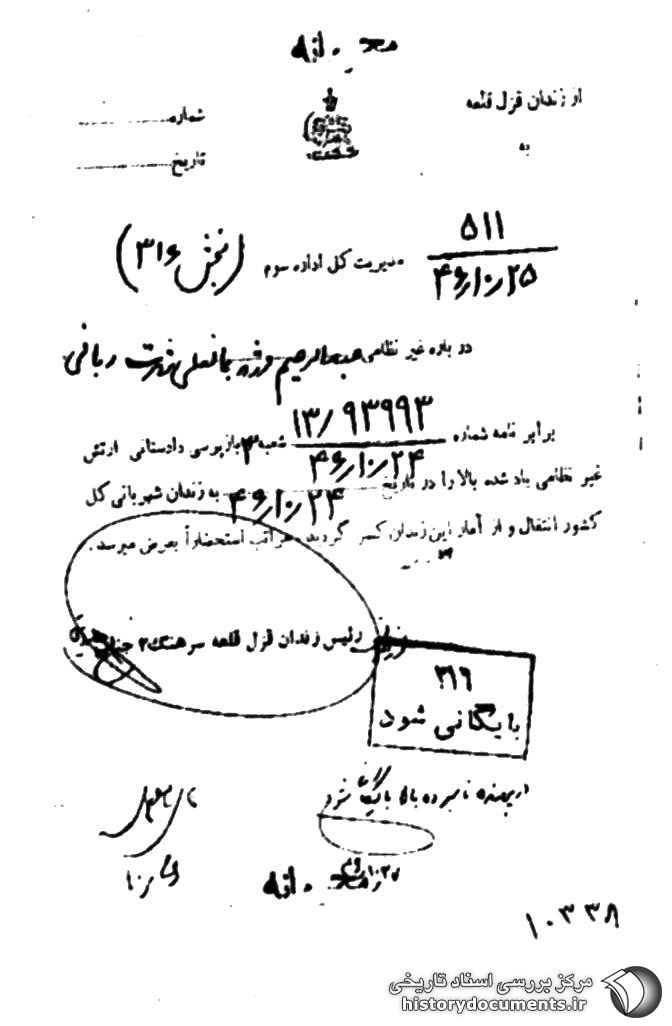 محرمانه
از زندان قزل قلعه
شماره
به
تاریخ
۵۱۱
۴۶٫۱۰٫۲۵
مدیریت کل اداره سوم (بخش ۳۱۶)
درباره غیر نظامی عبدالرحیم ربانی
برابر نامه شماره ۱۳٫۹۳۹۹۳
۴۶٫۱۰٫۲۴ شعبه ۳ بازپرسی دادستانی ارتش
غیر نظامی یاد شده بالا را در تاریخ ۴۶٫۱۰٫۲۴ به زندان شهربانی کل
کشور انتقال و از آمار این زندان کسر گردید مراتب استحضاراً بعرض میرسد.
رئیس زندان قزل قلعه سرهنگ ۲
۳۱۶
بایگانی شود
در پرونده نامبرده بالا بایگانی شود
محرمانه
۱۰۳۳۸
مرکز بررسی اسناد تاریخی
historydocuments.ir